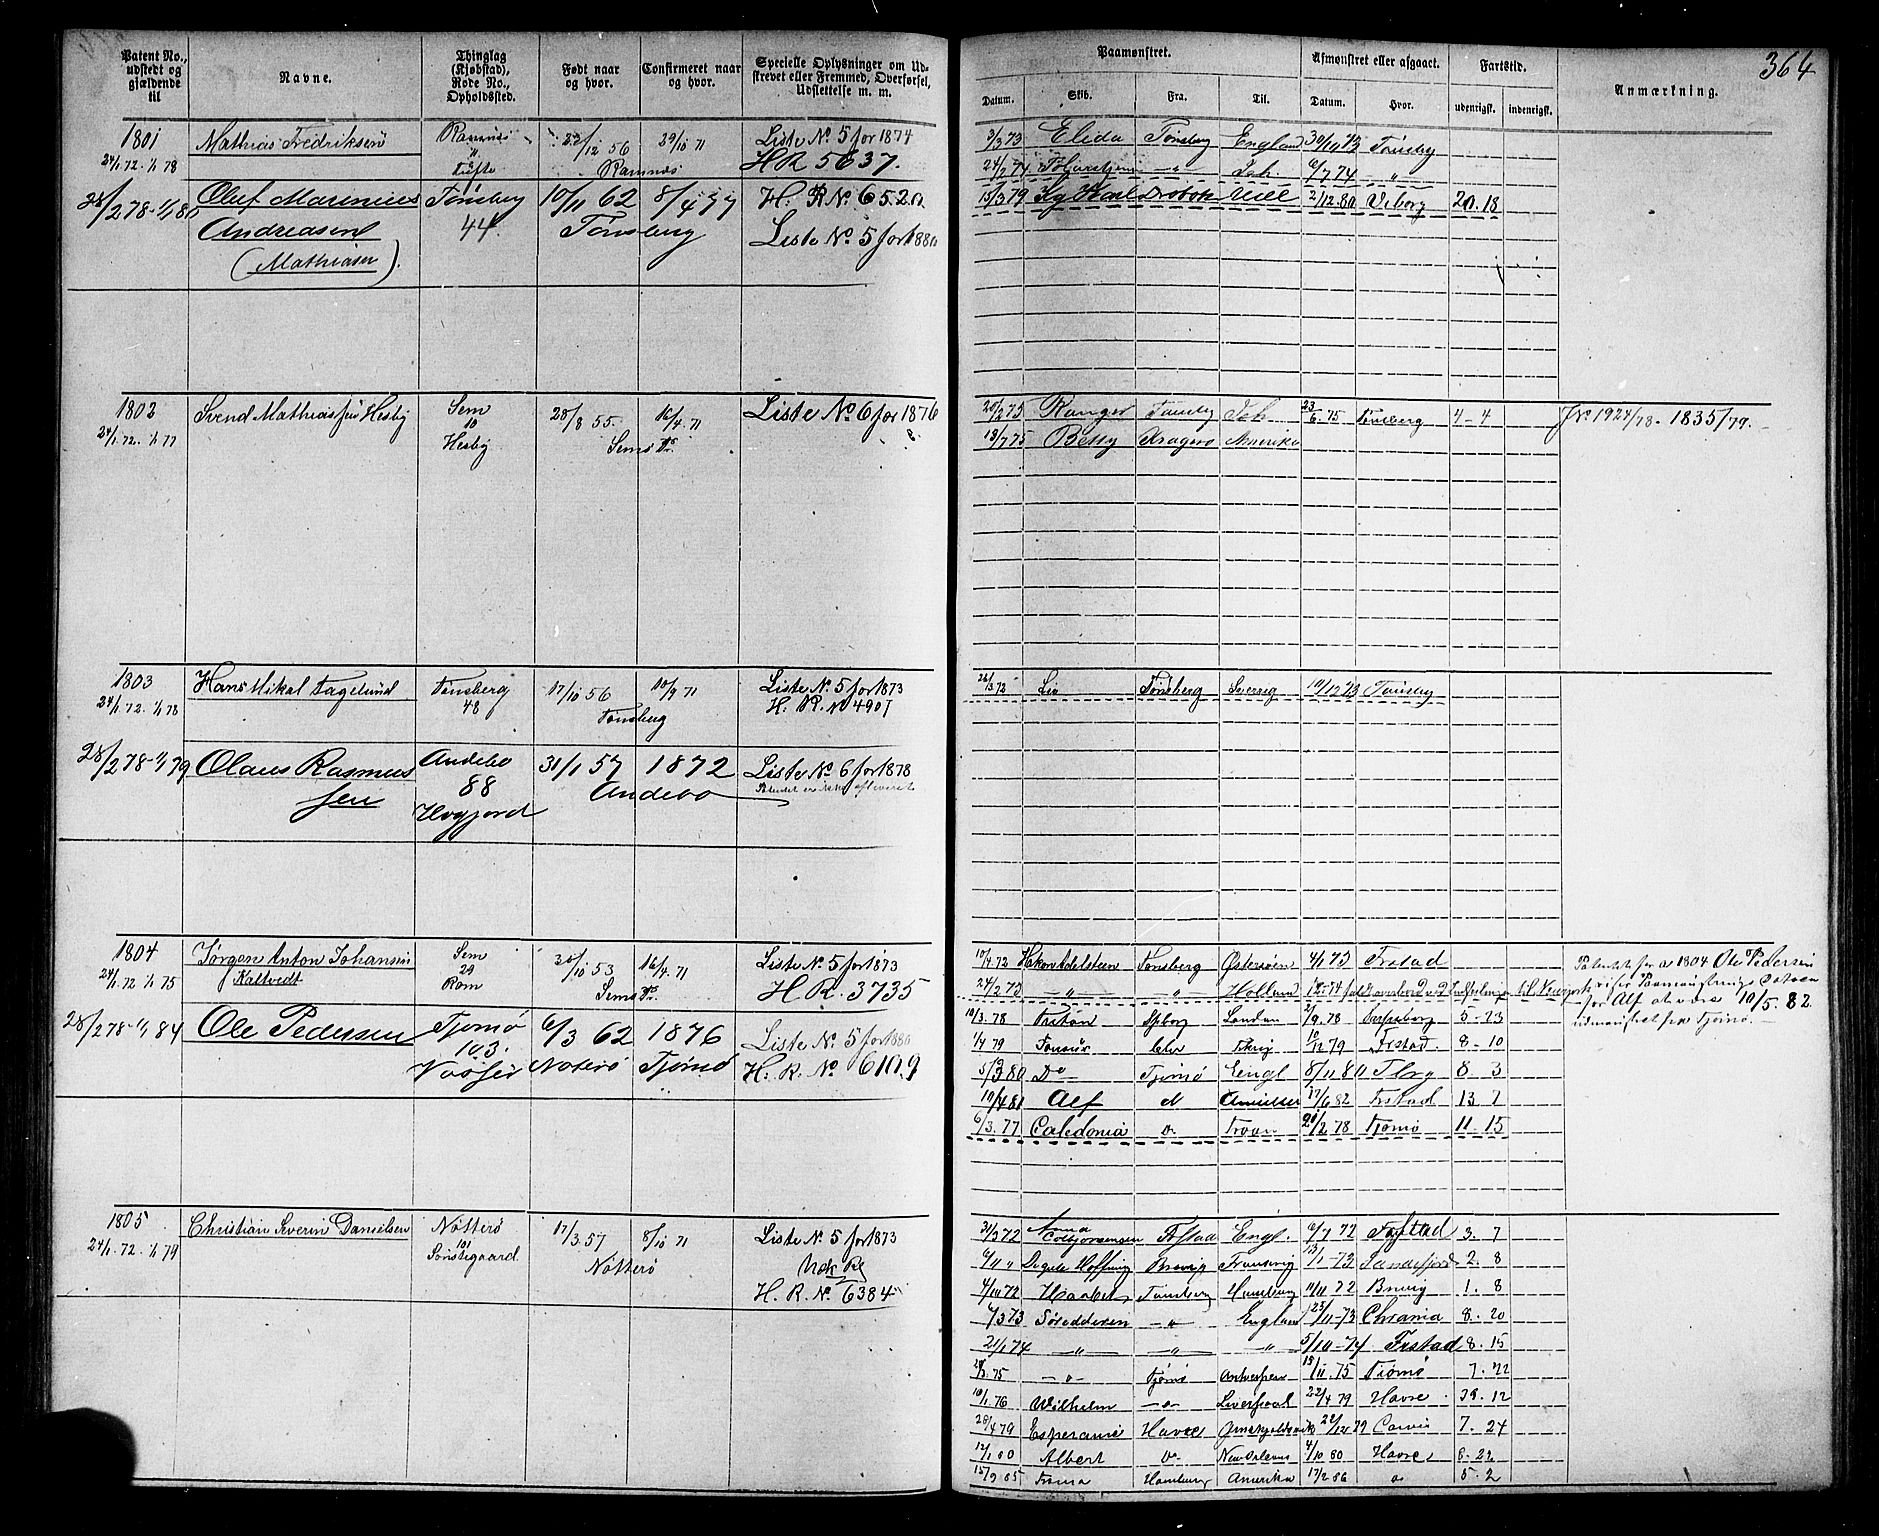 364
Patent No., udstedt og gjældende til
Navne.
Thinglag (Kjøbstad), Rode No., Opholdssted.
Født naar og hvor.
Confirmeret naar og hvor.
Specielle Oplysninger om Udskrevet eller Fremmed, Overførsel, Udslettelse m. m.
Paamønstret.
Datum.
Skib.
Fra.
Til.
Afmønstret eller afgaaet.
Datum.
Hvor.
Fartstid.
udenrigsk.
indenrigsk.
Anmærkning.
1801
24/1.72. 1/1 78
Mathias Fredriksen
Ramnæs
Tufte
22/12 56
29/10 71
Ramnæs
Liste No 5 for 1874
HR 5637.
3/3 73 Elida Tønsberg England 30/10 73 Tønsberg
24/2 74 " 6/7 74 "
28/2 78-1/1 80
Oluf Marenius
Andreasen
(Mathiasen).
Tønsberg
44.
10/11 62
8/4 77
Tønsberg
H. R No 6520.
Liste No 5 for 1880
15/3 79 2/12.80 Viborg 20.18
1802
24/1.72. 1/1 77
Svend Mathiassen Hesby
Sem
10
Hesby
28/8 55.
16/4.71
Sems Pr.
Liste No 6 for 1876
20/2 75 Ranger Tønsberg 23/6.75 Tønsberg 4-4
13/7 75 Betty Kragerø Amerika
J No 1924/78. 1835/79.
1803
24/1.72. 1/1 78
Hans Mikal Fagelund
Tønsberg
48
17/10 56
10/9 71
Tønsberg
Liste No 5 for 1873
H. R. No 4907
26/3 72 Liv Tønsberg Sverrig 10/12 73 Tønsberg
28/2 78-1/1 79
Olaus Rasmus
sen
Andebo
88
Hvgjord
31/1 57
1872
Andebo
Liste No 6 for 1878
Patentet er ikke afleveret
1804
24/1.72 1/1 75
Jørgen Anton Johansen
Kaltvedt
Sem
29
Rom
30/10 53
16/4.71
Sems Pr.
Liste No 5 for 1873
H. R. 3735
17/4.72 Hakon Adelsteen Tønsberg Østersøen 4/1 73 Frstad
24/2 73 " " Holland 18/5-74 faldt overbord
28/2 78-1/1 84
Ole Pedersen
Tjømø
103.
Vasser
6/3 62
Nøterø
1876
Tjømø
Liste No 5 for 1880
H. R. No 6109
10/3.78 London 9.78 5-23
1/4 79 79 Frstad. 8-10
5/3 80 Do Tjømø Engl 8/11 80 8. 3
10/4 81 Alf 17/6 82 Frstad 13 7
6/3.77 Caledonia 21/2 78 Tjømø 11.15
Patentet for No 1804 Ole Pedersen
viser Paamønstrings Datoen
for Alf at være 10/5.82
udmønstret fra Tjømø.
1805
24/1.72. 1/1 79
Christian Severin Danielsen
Nøtterø
101
Sønstegaard
17/3.57
8/10 71
Nøtterø
Liste No 5 for 1873
Udsk Rg
H. R. No. 6384
31/3 72 Anna Engl. 6/7 72 3. 7
6/11 " Brevig 13/1-73 Sandefjord 2. 8
4/10 72 Haabet Tønsberg Hamburg 11/11 72 Brevig 1. 8
3 73 Sørodderen " England 23/11-73 Chrania 8. 20
21/1 74 " " " 5/10-74 Frstad 8.15
75 " Tjømø Antwerpen 15/11.75 Tjømø 7.22
10/1 76 Wilhelm " Liverpool 22/4 79 Havre 39.12
28/4 79 Esperance Havre 22/12 79 7. 24
12/1 80 Albert Do New Orleans 4/10 80 Havre 8-22
15/9 85 Hamburg Amerika 17/2 86 5.2